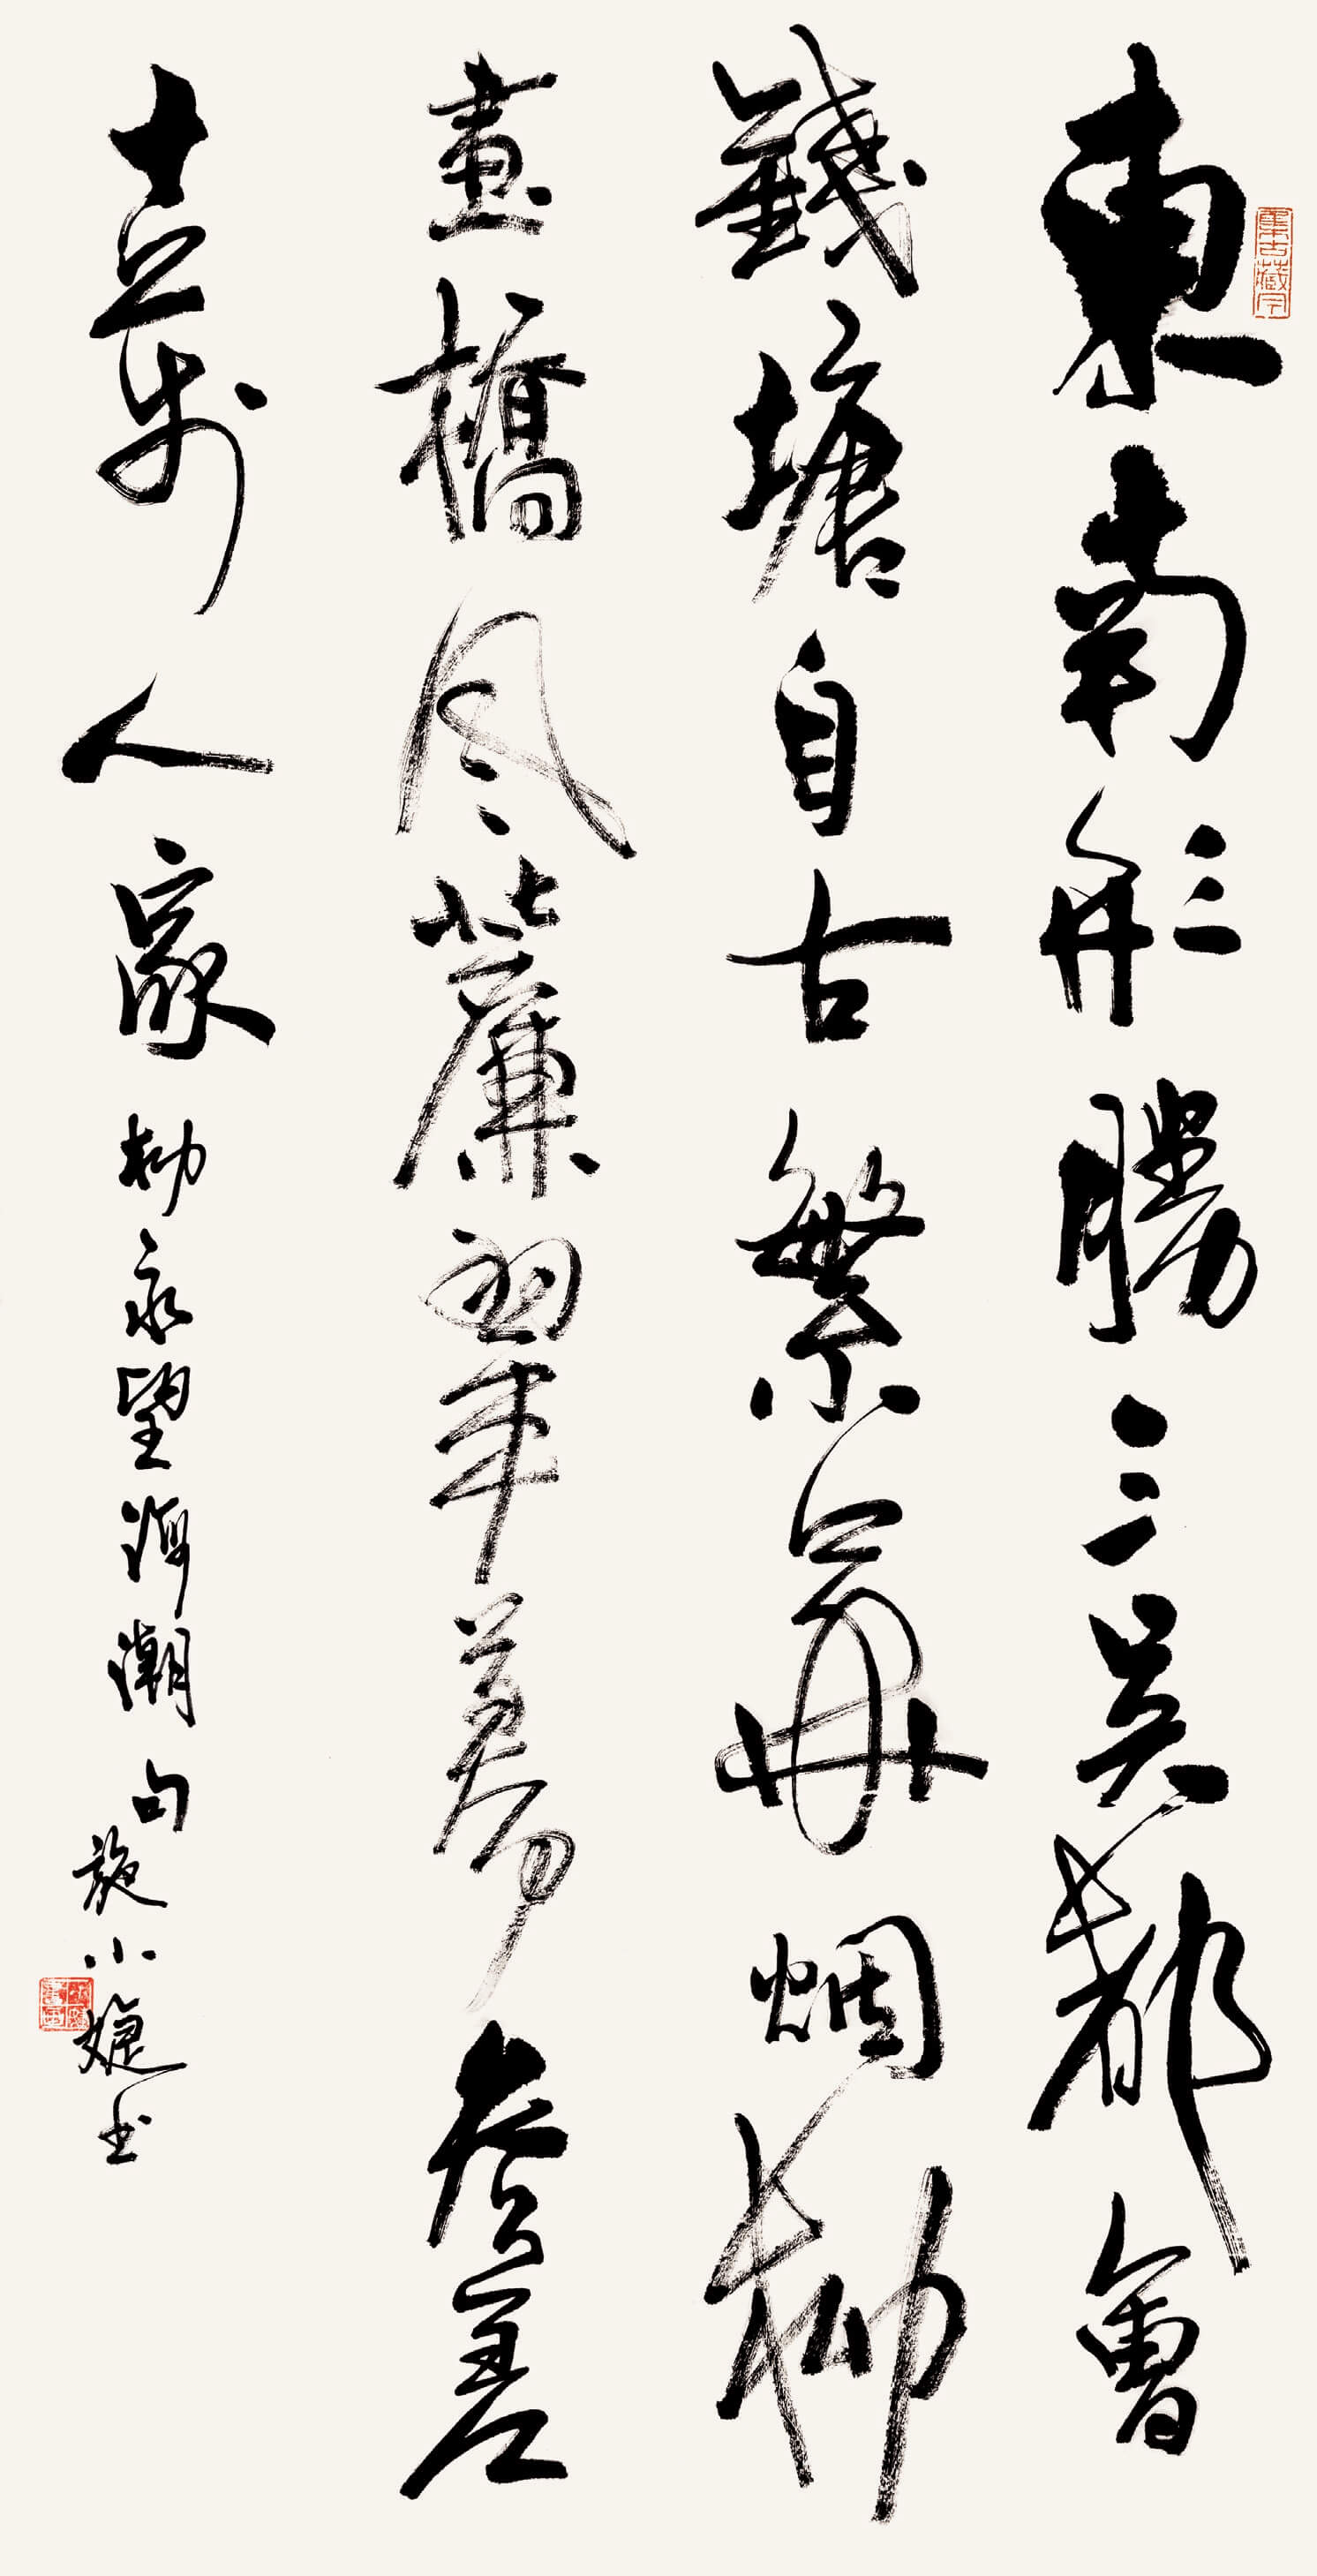 東南形勝三吳都會
錢塘自古繁華烟柳
畫橋風簾翠幕參差
十萬人家 柳永望海潮句
施小婕书